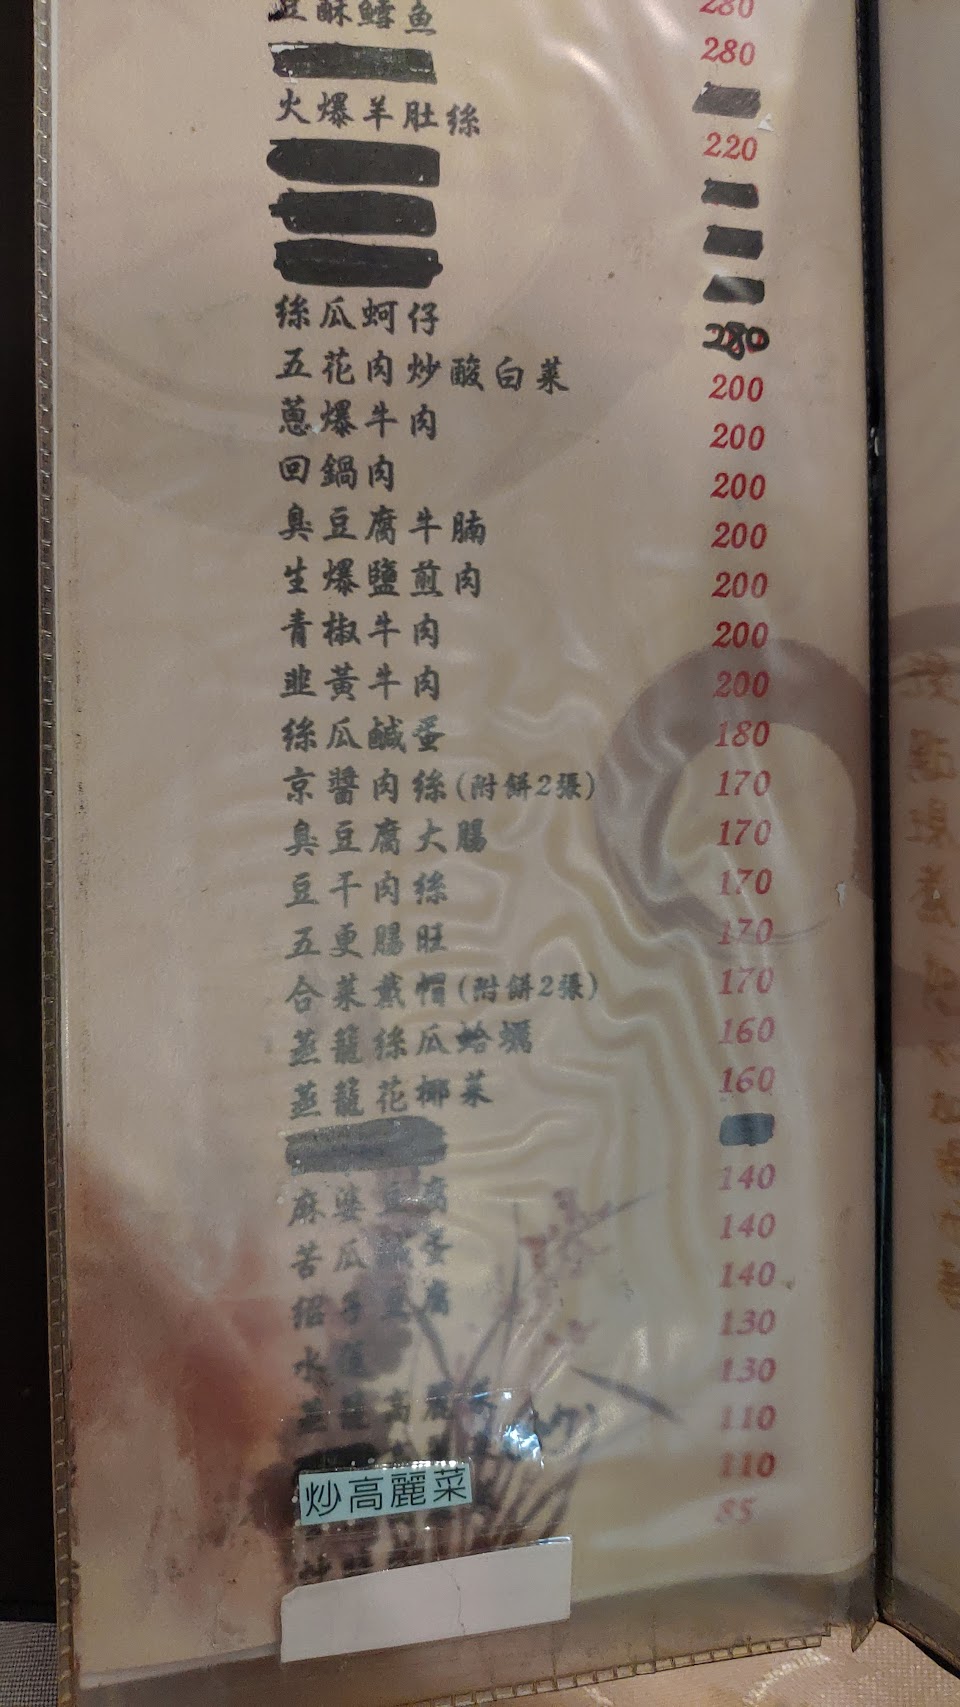 豆酥鱈魚 280
280
火爆羊肚絲
220
絲瓜蚵仔 280
五花肉炒酸白菜 200
蔥爆牛肉 200
回鍋肉 200
臭豆腐牛腩 200
生爆鹽煎肉 200
青椒牛肉 200
韭黃牛肉 200
絲瓜鹹蛋 180
京醬肉絲(附餅2張) 170
臭豆腐大腸 170
豆干肉絲 170
五更腸旺 170
合菜戴帽(附餅2張) 170
蒸籠絲瓜蛤蠣 160
蒸籠花椰菜 160
麻婆豆腐 140
苦瓜鹹蛋 140
紹子豆腐 140
水蓮 130
蒸籠高麗菜 130
110
炒高麗菜 110
85